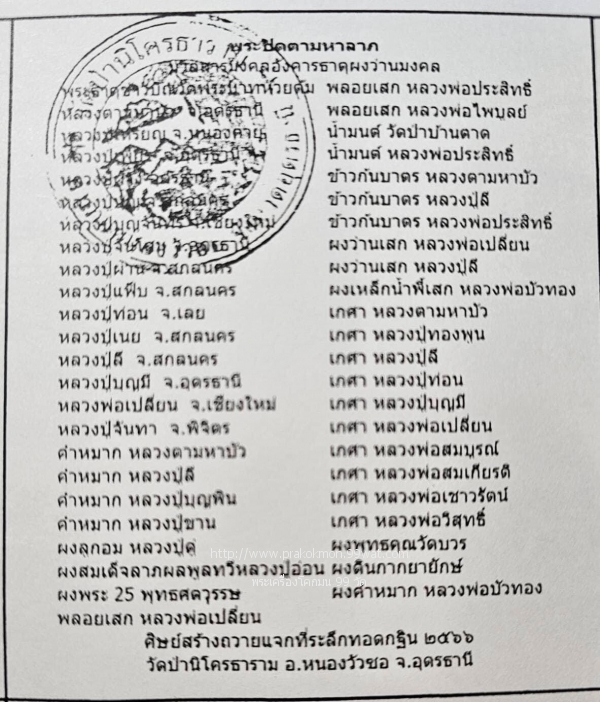 พระปิดตามหาลาภ
มวลสารมงคลอังคารธาตุผงว่านมงคล
พลอยเสก หลวงพ่อประสิทธิ์
หลวงตามหาบัว จ.อุดรธานี พลอยเสก หลวงพ่อไพบูลย์
จ.หนองคาย น้ำมนต์ วัดป่าบ้านตาด
น้ำมนต์ หลวงพ่อประสิทธิ์
ข้าวก้นบาตร หลวงตามหาบัว
จ.สกลนคร ข้าวก้นบาตร หลวงปู่ลี
หลวงปู่บุญจันทร์ จ.เชียงใหม่ ข้าวก้นบาตร หลวงพ่อประสิทธิ์
หลวงปู่จันทร์โสม จ.อุดรธานี ผงว่านเสก หลวงพ่อเปลี่ยน
หลวงปู่ผ่าน จ.สกลนคร ผงว่านเสก หลวงปู่ลี
หลวงปู่แฟ๊บ จ.สกลนคร ผงเหล็กน้ำพี้เสก หลวงพ่อบัวทอง
หลวงปู่ท่อน จ.เลย เกศา หลวงตามหาบัว
หลวงปู่เนย จ.สกลนคร เกศา หลวงปู่ทองพูน
หลวงปู่ลี จ.สกลนคร เกศา หลวงปู่ลี
หลวงปู่บุญมี จ.อุดรธานี เกศา หลวงปู่ท่อน
หลวงพ่อเปลี่ยน จ.เชียงใหม่ เกศา หลวงปู่บุญมี
หลวงปู่จันทา จ.พิจิตร เกศา หลวงพ่อเปลี่ยน
คำหมาก หลวงตามหาบัว เกศา หลวงพ่อสมบูรณ์
คำหมาก หลวงปู่ลี เกศา หลวงพ่อสมเกียรติ
คำหมาก หลวงปู่บุญพิน เกศา หลวงพ่อเชาวรัตน์
คำหมาก หลวงปู่ขาน เกศา หลวงพ่อวิสุทธิ์
ผงลูกอม หลวงปู่ดู่ ผงพุทธคุณวัดบวร
ผงสมเด็จลาภผลพูลทวีหลวงปู่อ่อน ผงดินกากยายักษ์
ผงพระ 25 พุทธศตวรรษ ผงคำหมาก หลวงพ่อบัวทอง
พลอยเสก หลวงพ่อเปลี่ยน
ศิษย์สร้างถวายแจกที่ระลึกทอดกฐิน ๒๕๖๖
วัดป่านิโครธาราม อ.หนองวัวซอ จ.อุดรธานี